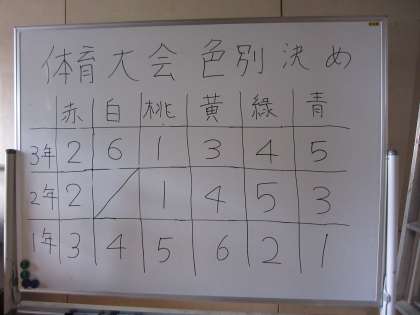 体育大会色別決め
赤 白 桃 黄 緑 青
3年 2 6 1 3 4 5
2年 2 / 1 4 5 3
1年 3 4 5 6 2 1